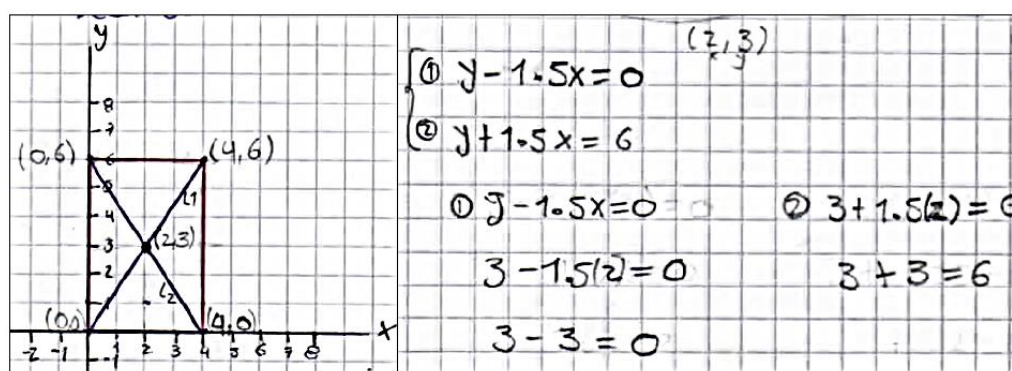 y
8
7
(0,6) 6 (4,6)
5
L1
4
3 (2,3)
2
L2
1
(0,0) (4,0) x
-2 -1 1 2 3 4 5 6 7 8
-1
(2,3)
x y
① y-1.5x=0
② y+1.5x=6
① y-1.5x=0
3-1.5(2)=0
3-3=0
② 3+1.5(2)=6
3+3=6